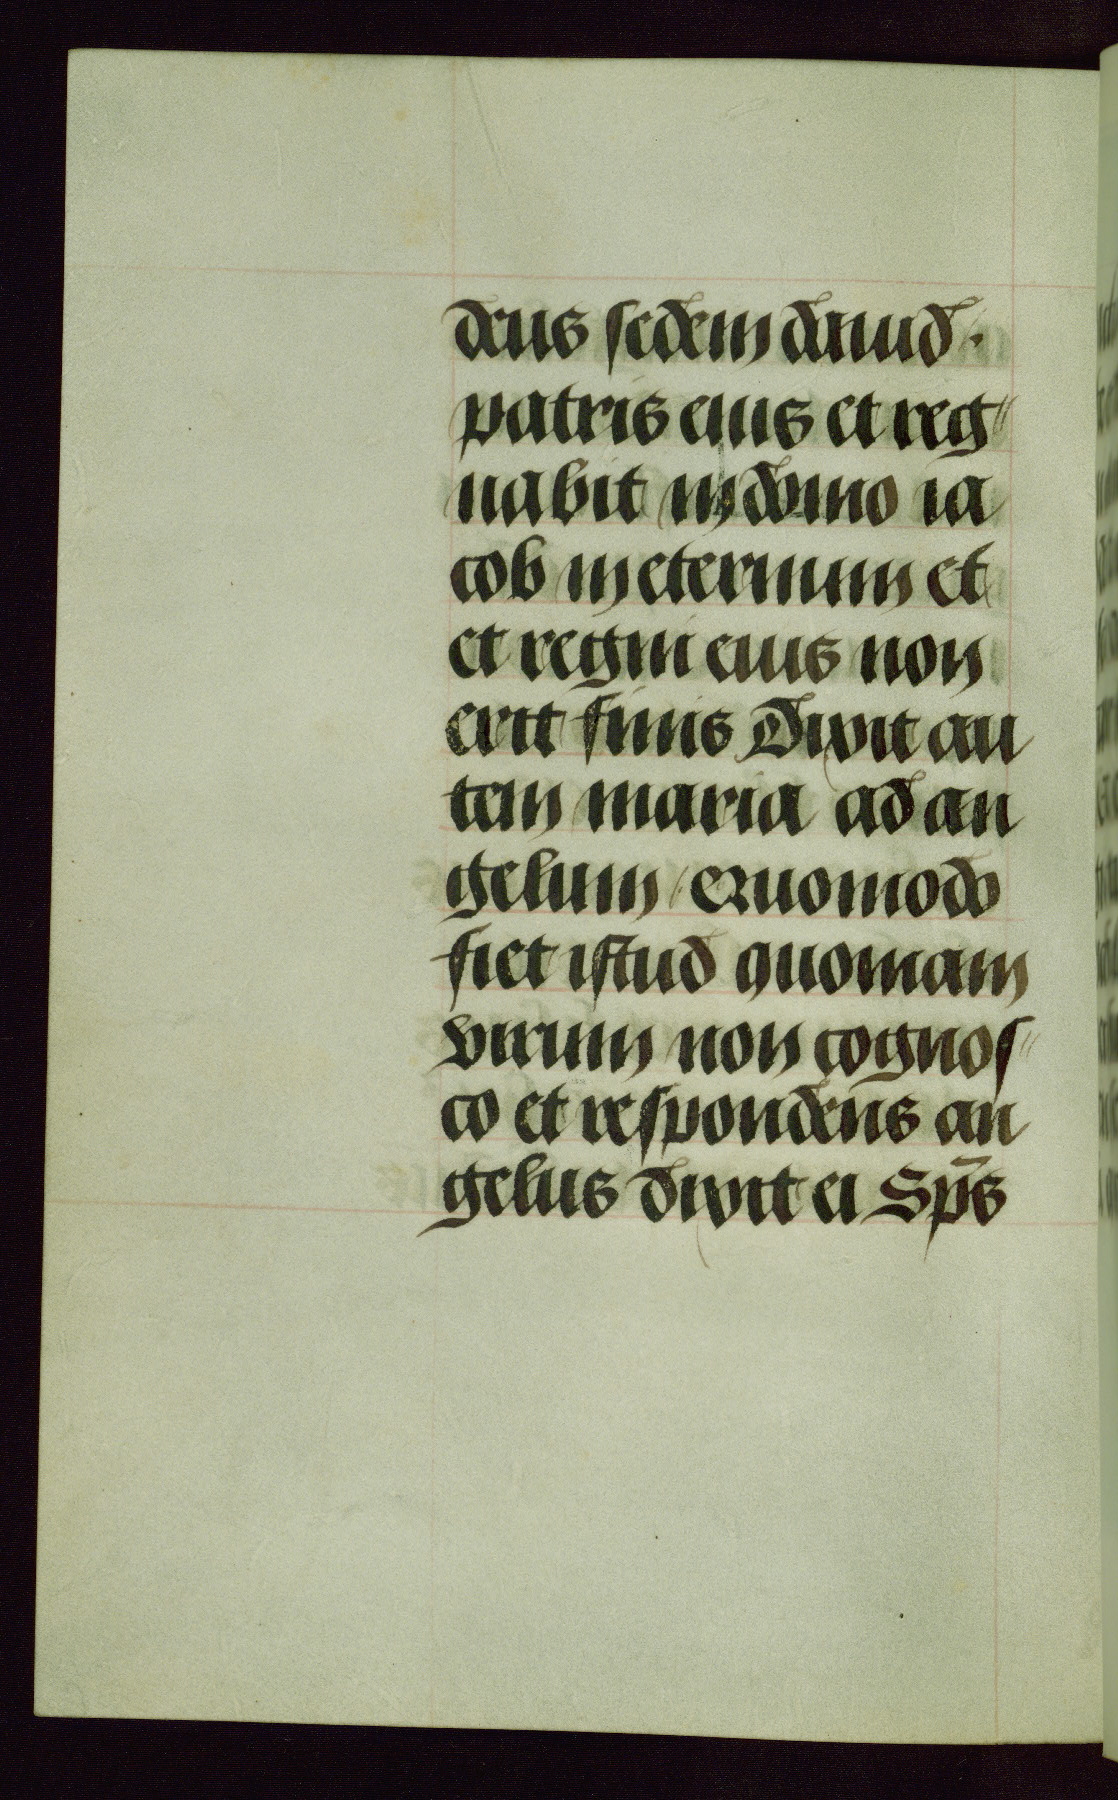 deus sedem dauid.
patris eius et reg"
nabit in domo ia
cob in eternum et
et regni eius non
erit finis Dixit au
tem maria ad an
gelum / Quomodo
fiet istud quoniam
virum non cognos"
co et respondens an
gelus dixit ei Sp̄s